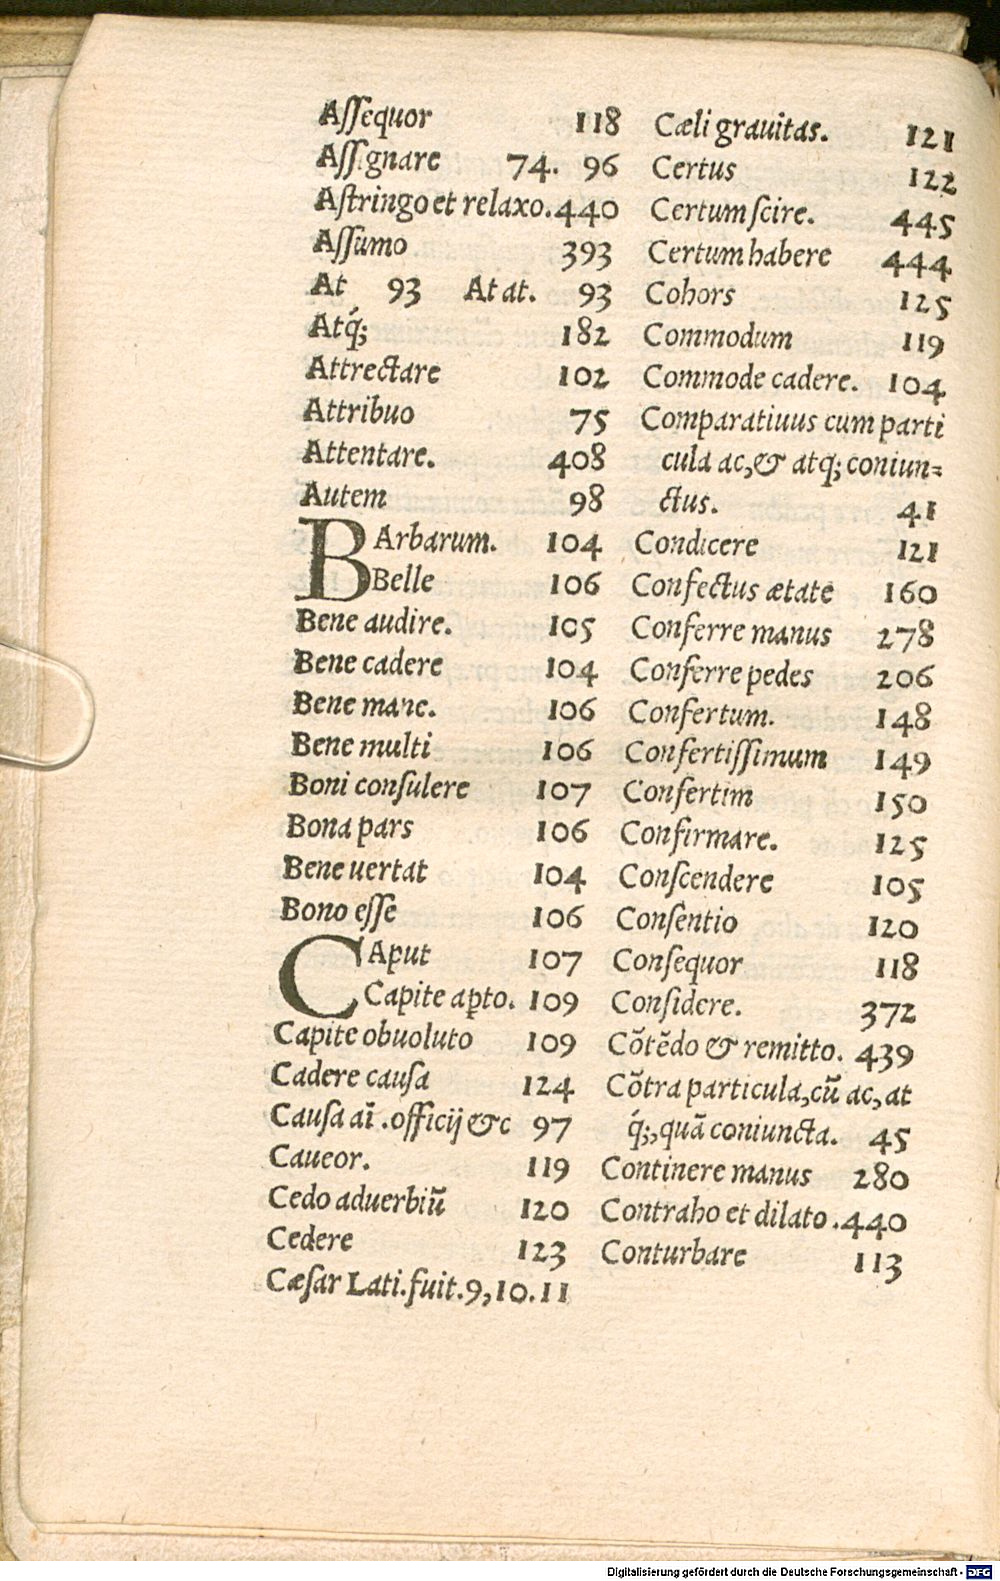 Aſſequor 118
Aſſignare 74. 96
Aſtringo et relaxo. 440
Aſſumo 393
At 93 At at. 93
Atq́; 182
Attrectare 102
Attribuo 75
Attentare. 408
Autem 98
BArbarum. 104
Belle 106
Bene audire. 105
Bene cadere 104
Bene mane. 106
Bene multi 106
Boni conſulere 107
Bona pars 106
Bene uertat 104
Bono eſſe 106
CAput 107
Capite apto. 109
Capite obuoluto 109
Cadere cauſa 124
Cauſa aĩ .officij &c 97
Caueor. 119
Cedo aduerbiũ 120
Cedere 123
Cæſar Lati.fuit.9,10.11
Cæli grauitas. 121
Certus 122
Certum ſcire. 445
Certum habere 444
Cohors 125
Commodum 119
Commode cadere. 104
Comparatiuus cum parti
cula ac,& atq; coniun=
ctus. 41
Condicere 121
Confectus ætate 160
Conferre manus 278
Conferre pedes 206
Confertum. 148
Confertiſſimum 149
Confertim 150
Confirmare. 125
Conſcendere 105
Conſentio 120
Conſequor 118
Conſidere. 372
Cõtẽdo & remitto. 439
Cõtra particula,cũ ac, at
q́;,quã coniuncta. 45
Continere manus 280
Contraho et dilato .440
Conturbare 113
Digitalisierung gefördert durch die Deutsche Forschungsgemeinschaft - DFG